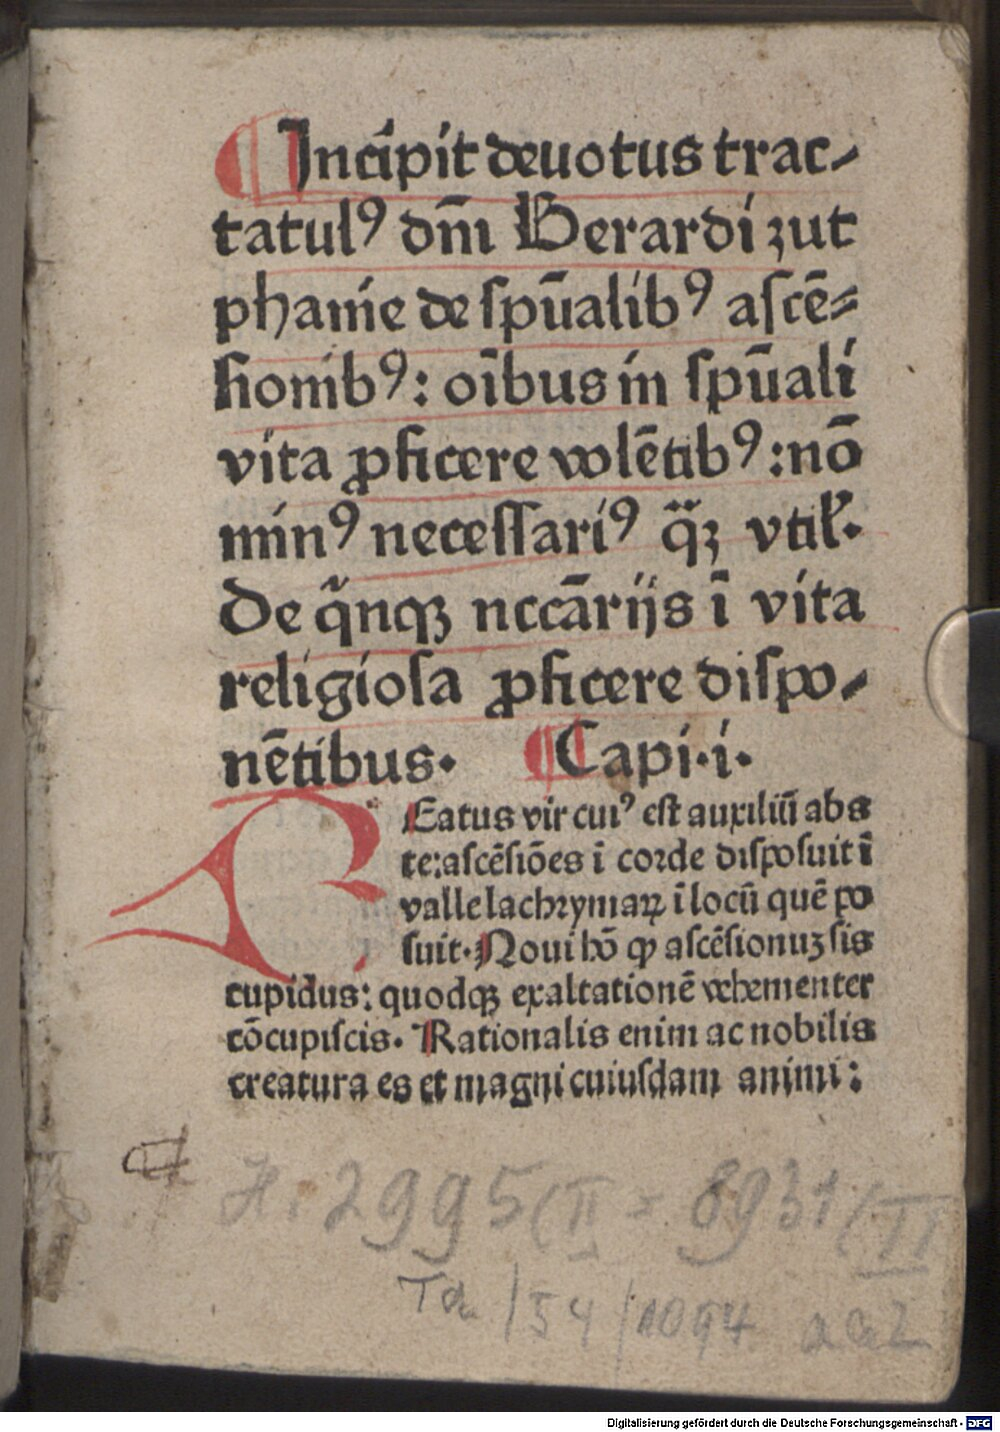 ¶ Incipit deuotus trac-
tatulꝰ dn̄i Berardi zut
phanie de spūalibꝰ ascē-
sionibꝰ: oībus in spūali
vita ꝓficere volētibꝰ: nō
minꝰ necessariꝰ q̄ꝫ vtil'.
De q̄nqꝫ nccārijs ī vita
religiosa ꝓficere dispo-
nētibus. ¶ Capi.i.
BEatus vir cuiꝰ est auxiliū abs
te: ascēsiōes ī corde disposuit ī
valle lachrymaꝝ ī locū quē po
suit. Noui hō ꝙ ascēsionuꝫ sis
cupidus: quodqꝫ exaltationē vehementer
cōcupiscis. Rationalis enim ac nobilis
creatura es et magni cuiusdam animi:
H. 2995 (II = 8931 (II
a a 2
Digitalisierung gefördert durch die Deutsche Forschungsgemeinschaft - DFG